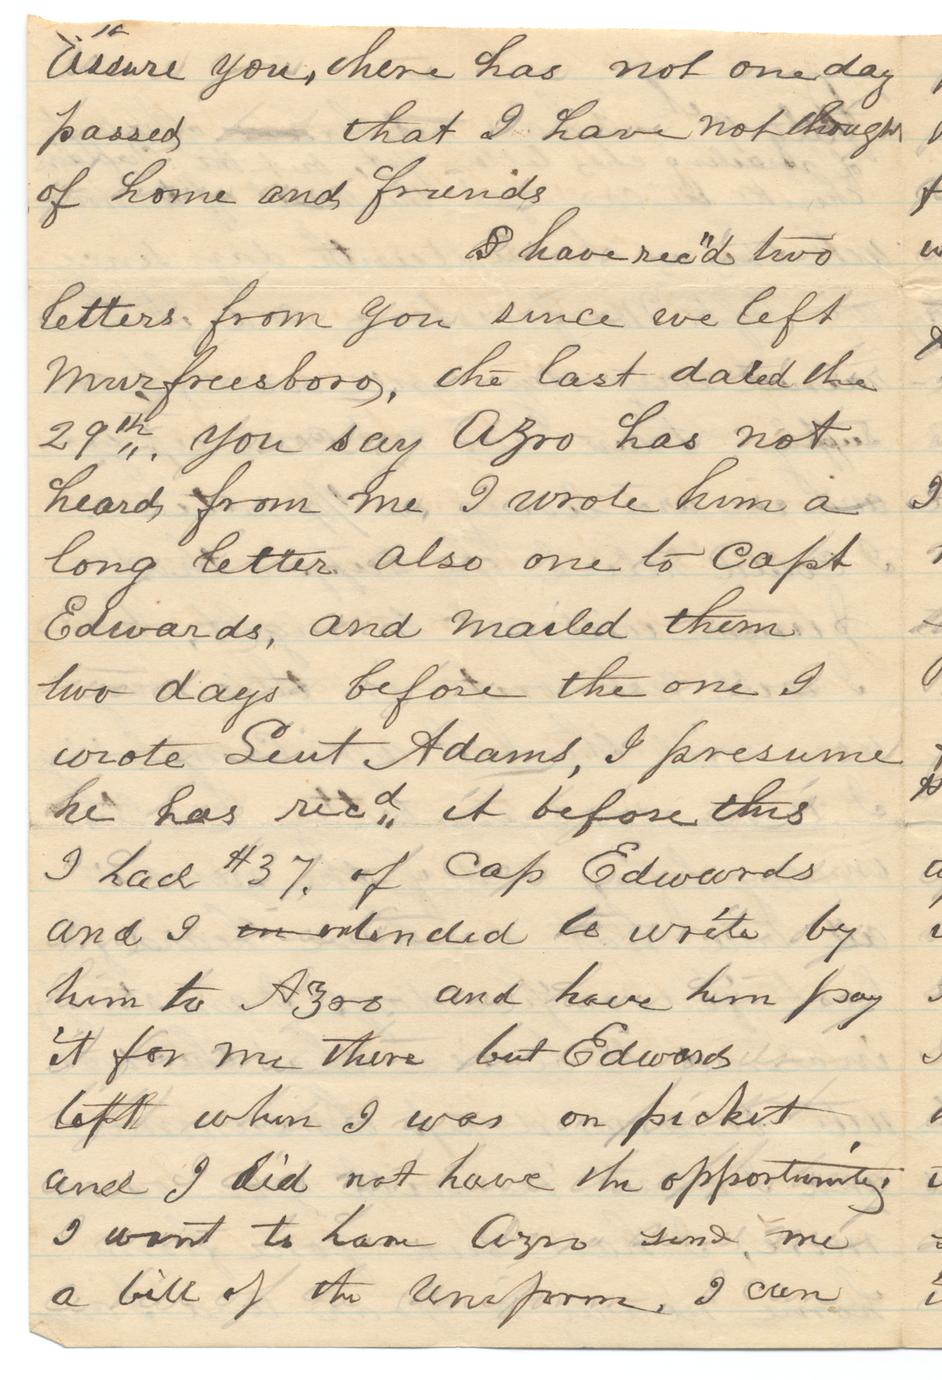 assure you, there has not one day
passed that I have not thought
of home and friends
I have rec"d two
letters from you since we left
Murfreesboro, the last dated the
29th. you say Azro has not
heard from me I wrote him a
long letter also one to Capt
Edwards, and mailed them
two days before the one I
wrote Leut Adams, I presume
he has recd it before this
I had $37. of Cap Edwards
and I in intended to write by
him to Azro and have him pay
it for me there but Edwards
left when I was on picket
and I did not have the opportunity.
I want to have Azro send me
a bill of the Uniform. I can